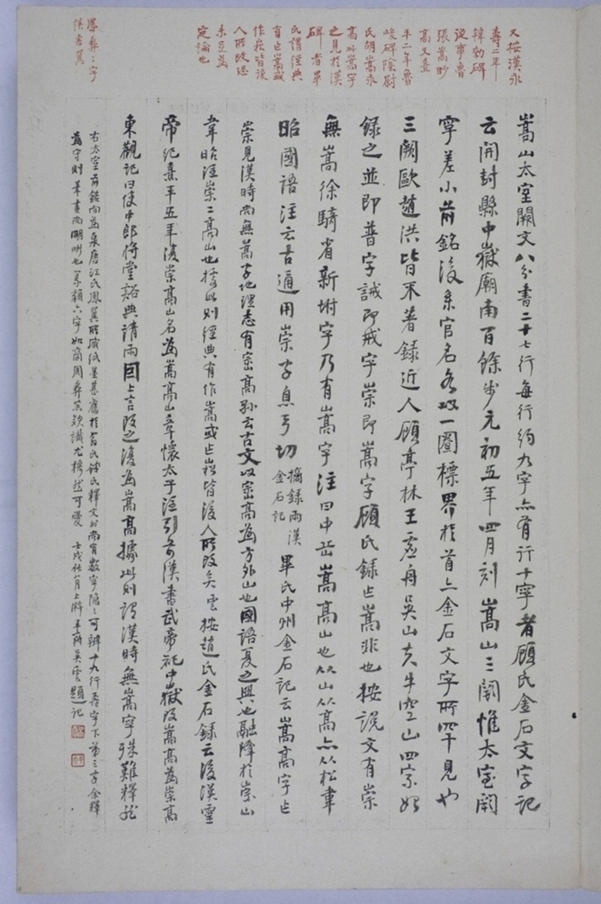 嵩山太室闕文八分書二十七行每行約九字亦有行十字者顧氏金石文字記
云開封縣中嶽廟南百餘步元初五年四月刻嵩山三闕惟太室闕
字差小前銘後系官名各以一圈標界於首亦金石文字所罕見也
三闕歐趙洪皆不著錄近人顧亭林王虛舟吳山夫牛空山四家始
錄之並即普字誡即戒字崇即嵩字顧氏錄作嵩非也按說文有崇
無嵩徐騎省新坿字乃有嵩字注曰中岳嵩高山也从山从高亦从松韋
昭國語注云古通用崇字息弓切
摘錄兩漢
金石記
畢氏中州金石記云嵩高字作
崇見漢時尚無嵩字地理志有崈高孫云古文以崈高為方外山也國語夏之興也融降於崇山
韋昭注崇嵩高山也據此則經典有作嵩或作崧皆後人所改矣雲按趙氏金石錄云後漢靈
帝紀熹平五年復崇高山名為嵩高山章懷太子注引前漢書武帝祀中嶽改嵩高為崇高
東觀記曰使中郎將堂谿典請雨因上言改之復為嵩高據此則謂漢時無嵩字殊難釋然
右太室前銘向為
江氏
所藏紙墨甚舊
氏釋文外尚有數字隱隱可辨十九行
字下第三字金釋
為守則筆畫尚明晰也篆額六字如商周彝器款識尤樸茂可愛 壬戌
月上澣
吳雲題記
又按漢永
壽二年
韓勑碑
說事魯
張嵩眇
高又熹
平二年魯
峻碑陰尉
氏胡嵩永
高此嵩字
之見於漢
碑者畢
氏謂經典
有作嵩或
作崧皆後
人所改恐
未足為
定論也